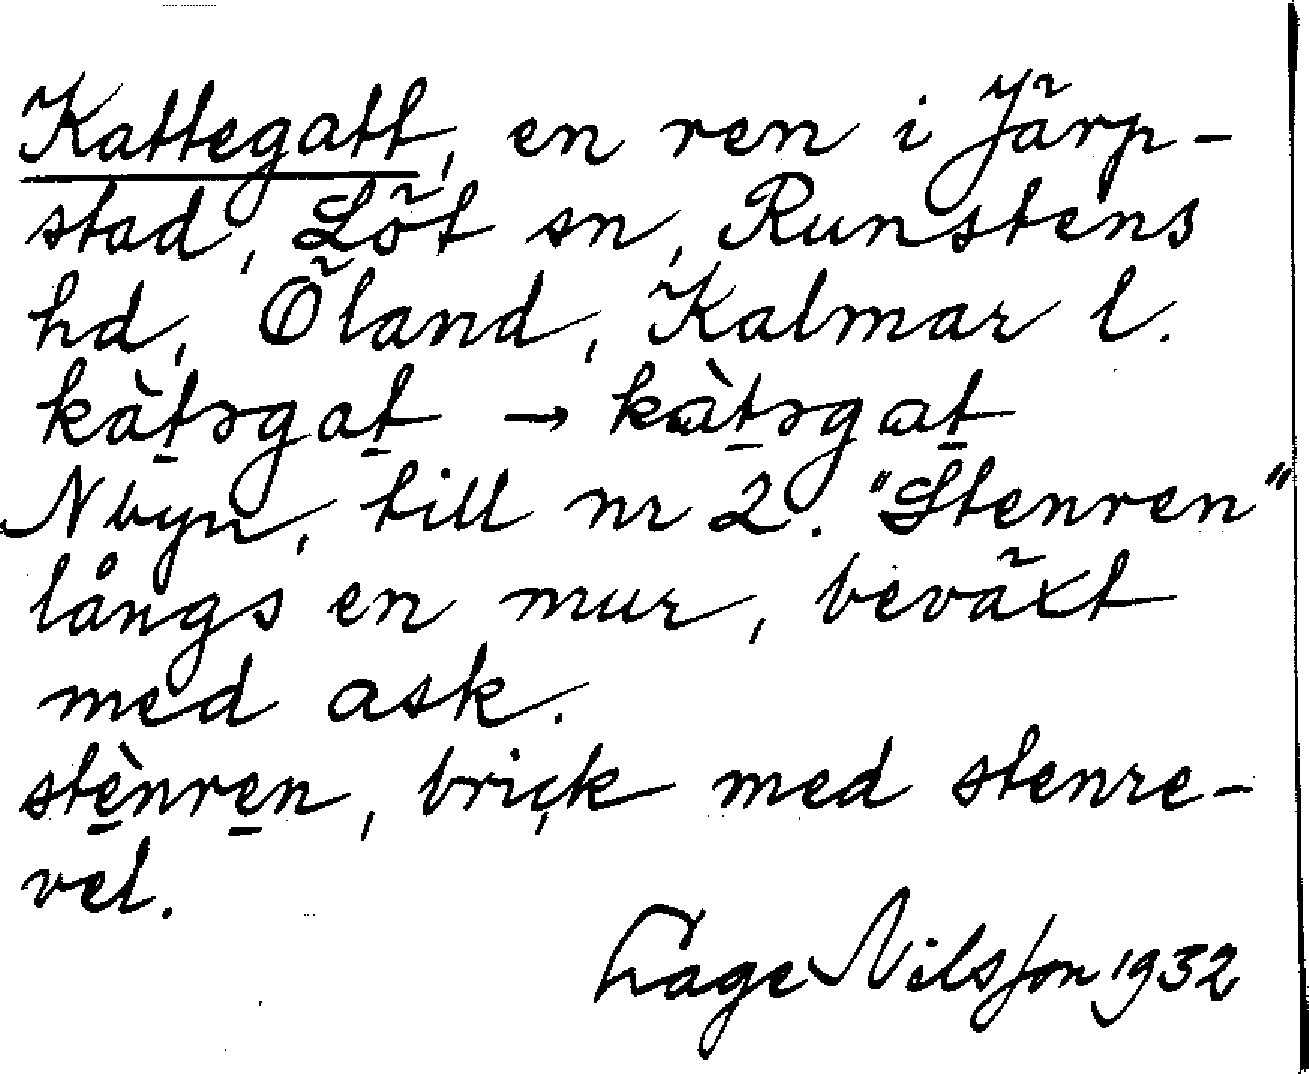 Kattegatt, en ren i Järp-
stad, Löt sn, Runstens
hd, Öland, Kalmar l.
kàt̠əgat̠ → kɑ̀t̠əgɑt̠
N byn, till nr 2. "Stenren"
långs en mur, beväxt
med ask.
stè̠nre̠n, brick med stenre-
vel.
Lage Nilsson 1932